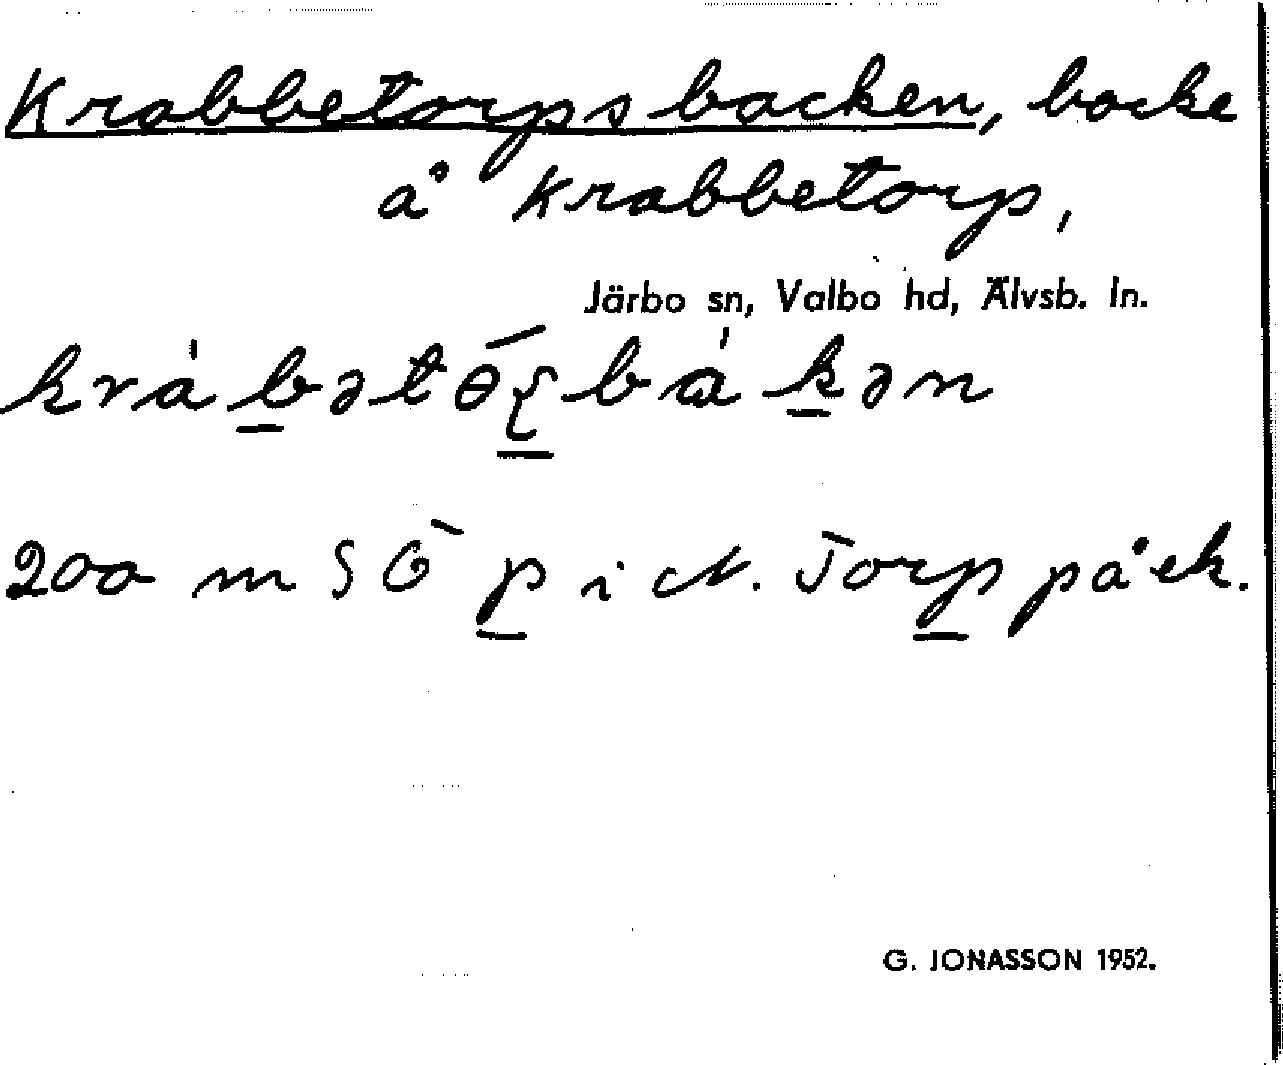 Krabbetorpsbacken, backe
å Krabbetorp,
Järbo sn, Valbo hd, Älvsb. ln.
200 m SO p i N. Torp på ek.
G. JONASSON 1952.